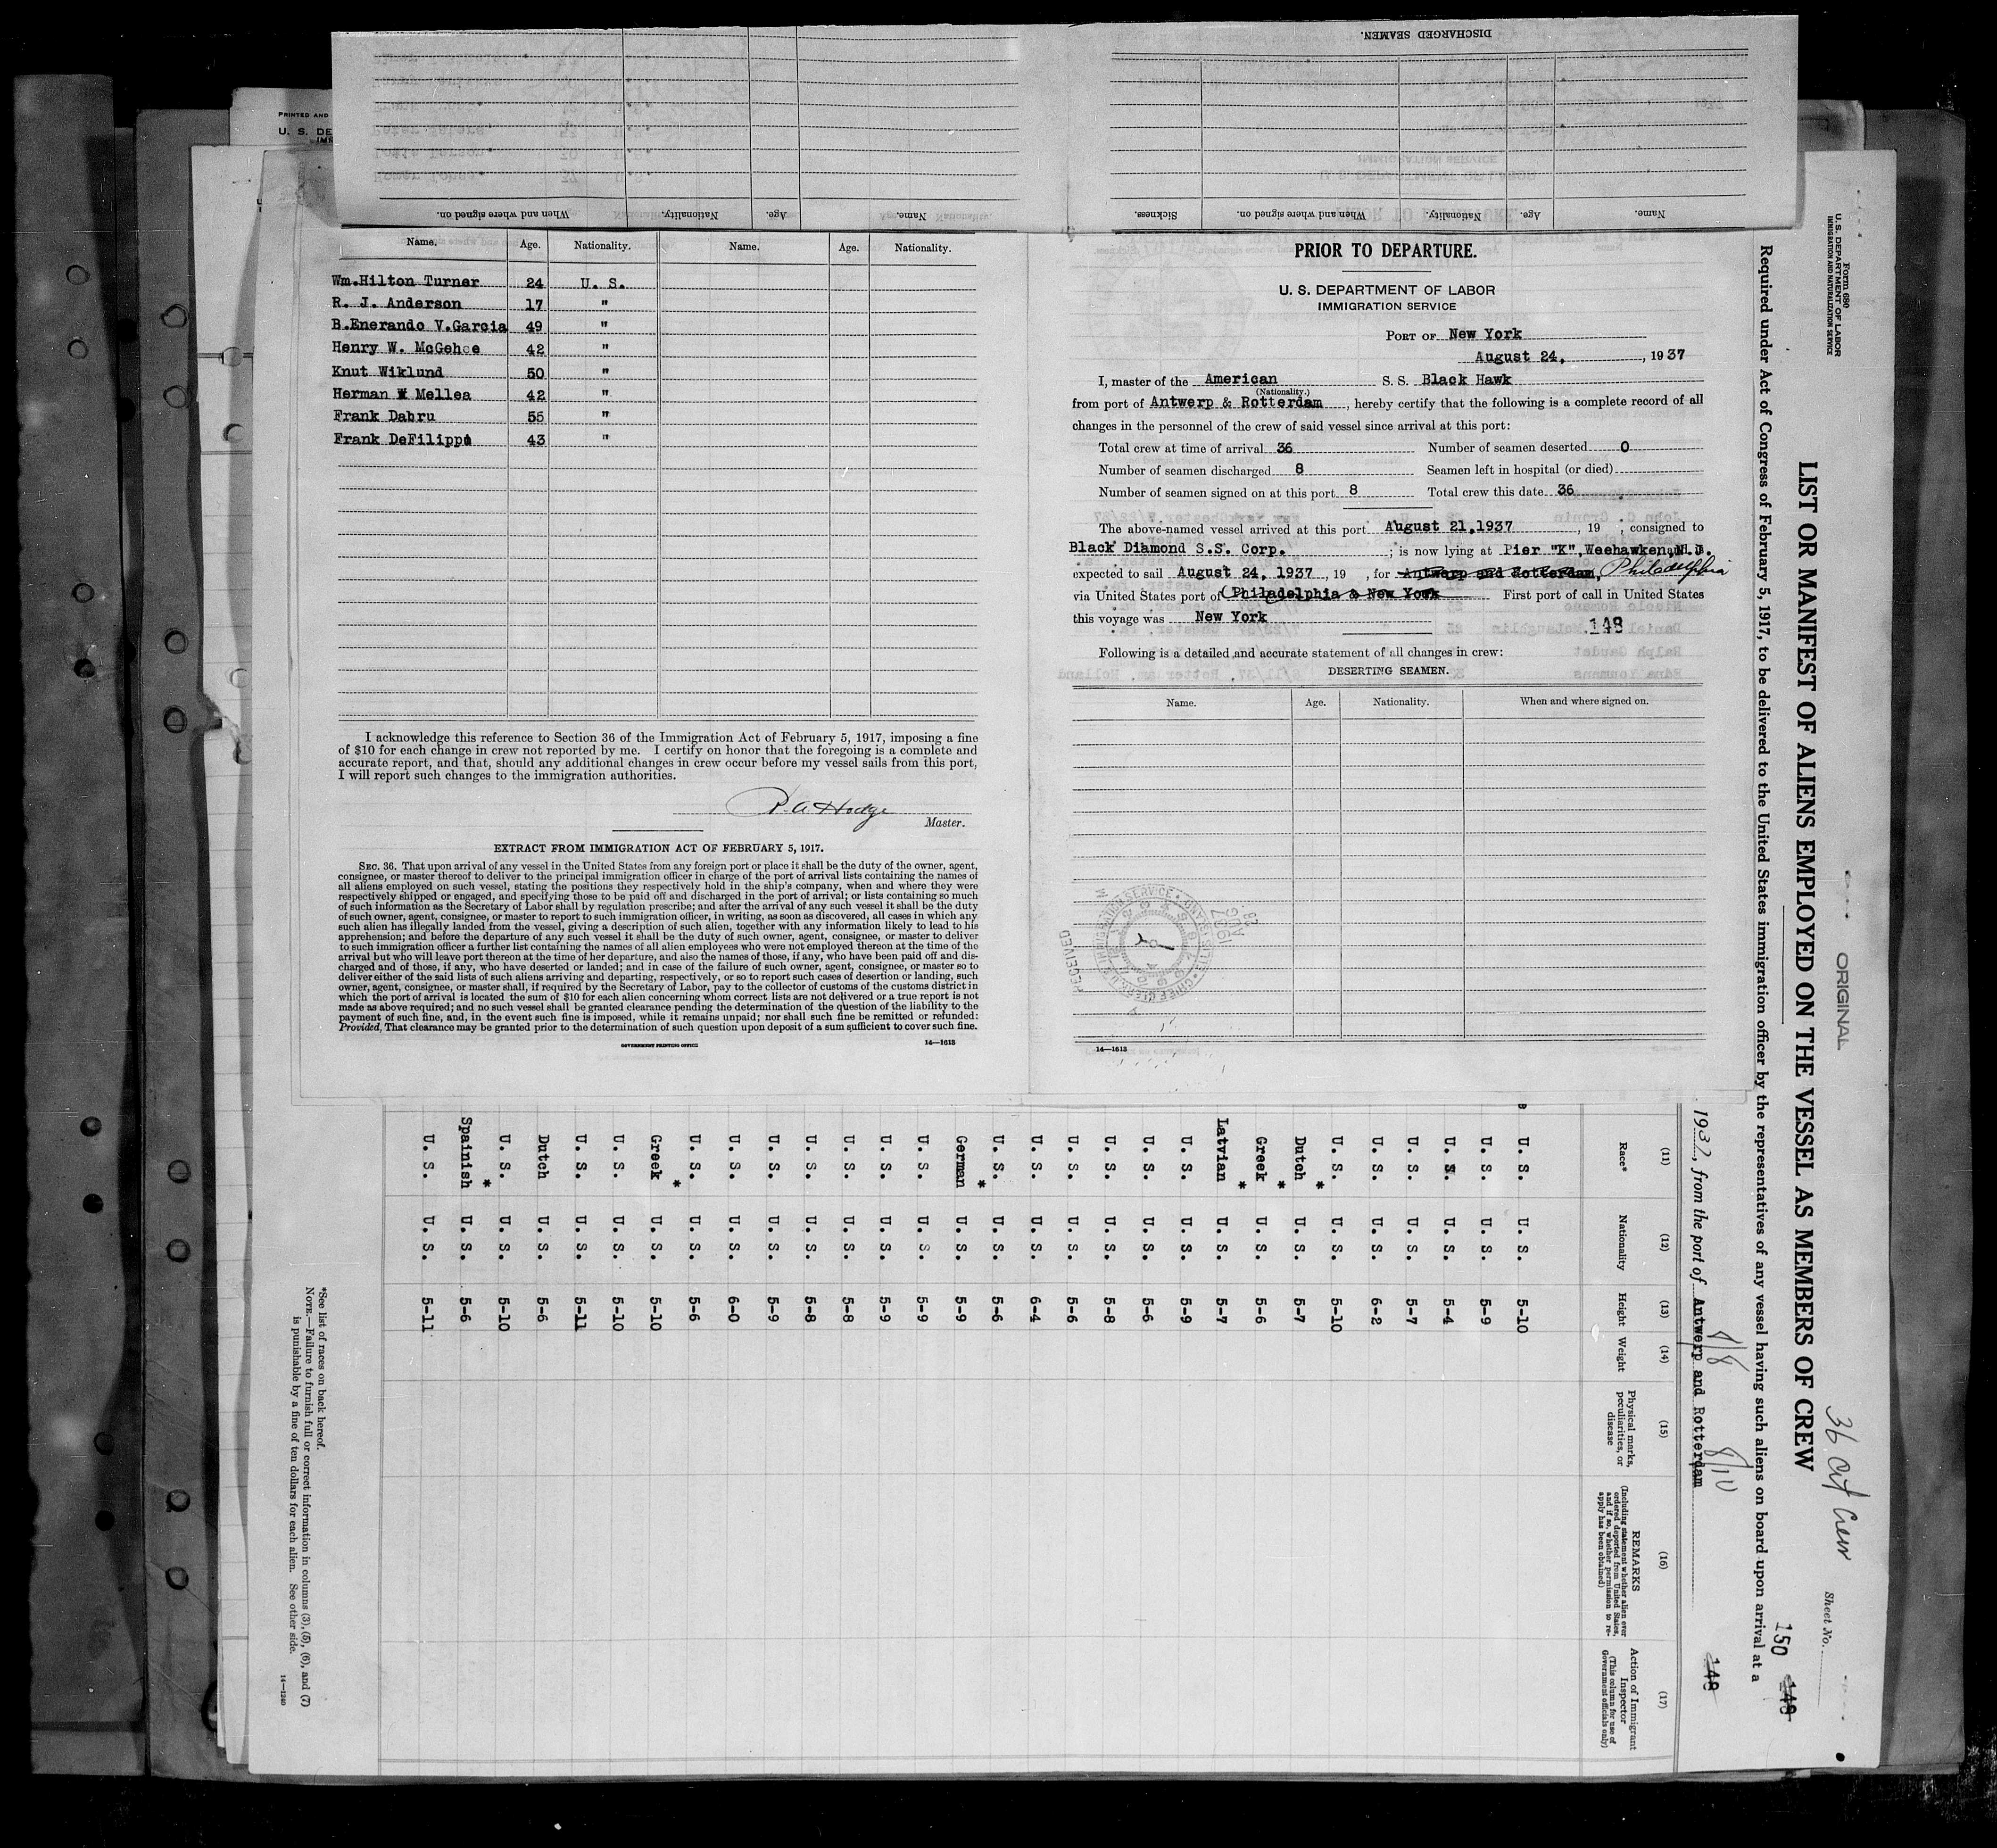 DISCHARGED SEAMEN.
Name. Age. Nationality. When and where signed on. Sickness.
Name. Age. Nationality. When and where signed on.
PRINTED AND
U. S. DE
Name. Age. Nationality. Name. Age. Nationality.
Wm.Hilton Turner 24 U. S.
R. J. Anderson 17 "
B.Enerando V.Garcia 49 "
Henry W. McGehee 42 "
Knut Wiklund 50 "
Herman W Mellea 42 "
Frank Dabru 55 "
Frank DeFilippi 43 "
I acknowledge this reference to Section 36 of the Immigration Act of February 5, 1917, imposing a fine
of $10 for each change in crew not reported by me. I certify on honor that the foregoing is a complete and
accurate report, and that, should any additional changes in crew occur before my vessel sails from this port,
I will report such changes to the immigration authorities.
R. A. Hodge
Master.
EXTRACT FROM IMMIGRATION ACT OF FEBRUARY 5, 1917.
SEC. 36. That upon arrival of any vessel in the United States from any foreign port or place it shall be the duty of the owner, agent,
consignee, or master thereof to deliver to the principal immigration officer in charge of the port of arrival lists containing the names of
all aliens employed on such vessel, stating the positions they respectively hold in the ship's company, when and where they were
respectively shipped or engaged, and specifying those to be paid off and discharged in the port of arrival; or lists containing so much
of such information as the Secretary of Labor shall by regulation prescribe; and after the arrival of any such vessel it shall be the duty
of such owner, agent, consignee, or master to report to such immigration officer, in writing, as soon as discovered, all cases in which any
such alien has illegally landed from the vessel, giving a description of such alien, together with any information likely to lead to his
apprehension; and before the departure of any such vessel it shall be the duty of such owner, agent, consignee, or master to deliver
to such immigration officer a further list containing the names of all alien employees who were not employed thereon at the time of the
arrival but who will leave port thereon at the time of her departure, and also the names of those, if any, who have been paid off and dis-
charged and of those, if any, who have deserted or landed; and in case of the failure of such owner, agent, consignee, or master so to
deliver either of the said lists of such aliens arriving and departing, respectively, or so to report such cases of desertion or landing, such
owner, agent, consignee, or master shall, if required by the Secretary of Labor, pay to the collector of customs of the customs district in
which the port of arrival is located the sum of $10 for each alien concerning whom correct lists are not delivered or a true report is not
made as above required; and no such vessel shall be granted clearance pending the determination of the question of the liability to the
payment of such fine, and, in the event such fine is imposed, while it remains unpaid; nor shall such fine be remitted or refunded:
Provided, That clearance may be granted prior to the determination of such question upon deposit of a sum sufficient to cover such fine.
GOVERNMENT PRINTING OFFICE 14—1613
PRIOR TO DEPARTURE.
U. S. DEPARTMENT OF LABOR
IMMIGRATION SERVICE
PORT OF New York
August 24, , 1937
I, master of the American S. S. Black Hawk
(Nationality.)
from port of Antwerp & Rotterdam , hereby certify that the following is a complete record of all
changes in the personnel of the crew of said vessel since arrival at this port:
Total crew at time of arrival 36 Number of seamen deserted 0
Number of seamen discharged 8 Seamen left in hospital (or died)
Number of seamen signed on at this port 8 Total crew this date 36
The above-named vessel arrived at this port August 21,1937 , 19 , consigned to
Black Diamond S.S. Corp. ; is now lying at Pier "K",Weehawken,N.J.
expected to sail August 24, 1937 , 19 , for Antwerp and Rotterdam, Philadelphia
via United States port of (Philadelphia & New York First port of call in United States
this voyage was New York 148
Following is a detailed and accurate statement of all changes in crew:
DESERTING SEAMEN.
Name. Age. Nationality. When and where signed on.
RECEIVED
1937 AUG 23
14—1613
Form 680
U. S. DEPARTMENT OF LABOR
IMMIGRATION AND NATURALIZATION SERVICE
ORIGINAL
36 Cit Crew
Sheet No.
LIST OR MANIFEST OF ALIENS EMPLOYED ON THE VESSEL AS MEMBERS OF CREW
150 148
Required under Act of Congress of February 5, 1917, to be delivered to the United States immigration officer by the representatives of any vessel having such aliens on board upon arrival at a
1937, from the port of Antwerp and Rotterdam
8/8 8/10
148
(11) (12) (13) (14) (15) (16) (17)
Race* Nationality Height Weight Physical marks, peculiarities, or disease REMARKS (Including statement whether alien ever ordered deported from United States, and if so, whether permission to re-apply has been obtained) Action of Immigrant Inspector (This column for use of Government officials only)
U. S. U. S. 5-10
U. S. U. S. 5-9
U. S. U. S. 5-4
U. S. U. S. 5-7
U. S. U. S. 6-2
U. S. U. S. 5-10
Dutch * U. S. 5-7
Greek * U. S. 5-6
Latvian * U. S. 5-7
U. S. U. S. 5-9
U. S. U. S. 5-6
U. S. U. S. 5-8
U. S. U. S. 5-6
U. S. U. S. 6-4
U. S. U. S. 5-6
German * U. S. 5-9
U. S. U. S. 5-9
U. S. U. S. 5-9
U. S. U. S. 5-8
U. S. U. S. 5-8
U. S. U. S. 5-9
U. S. U. S. 6-0
U. S. U. S. 5-6
Greek * U. S. 5-10
U. S. U. S. 5-10
U. S. U. S. 5-11
Dutch U. S. 5-6
U. S. U. S. 5-10
Spainish * U. S. 5-6
U. S. U. S. 5-11
*See list of races on back hereof.
NOTE.—Failure to furnish full or correct information in columns (3), (5), (6), and (7)
is punishable by a fine of ten dollars for each alien. See other side.
14—1240